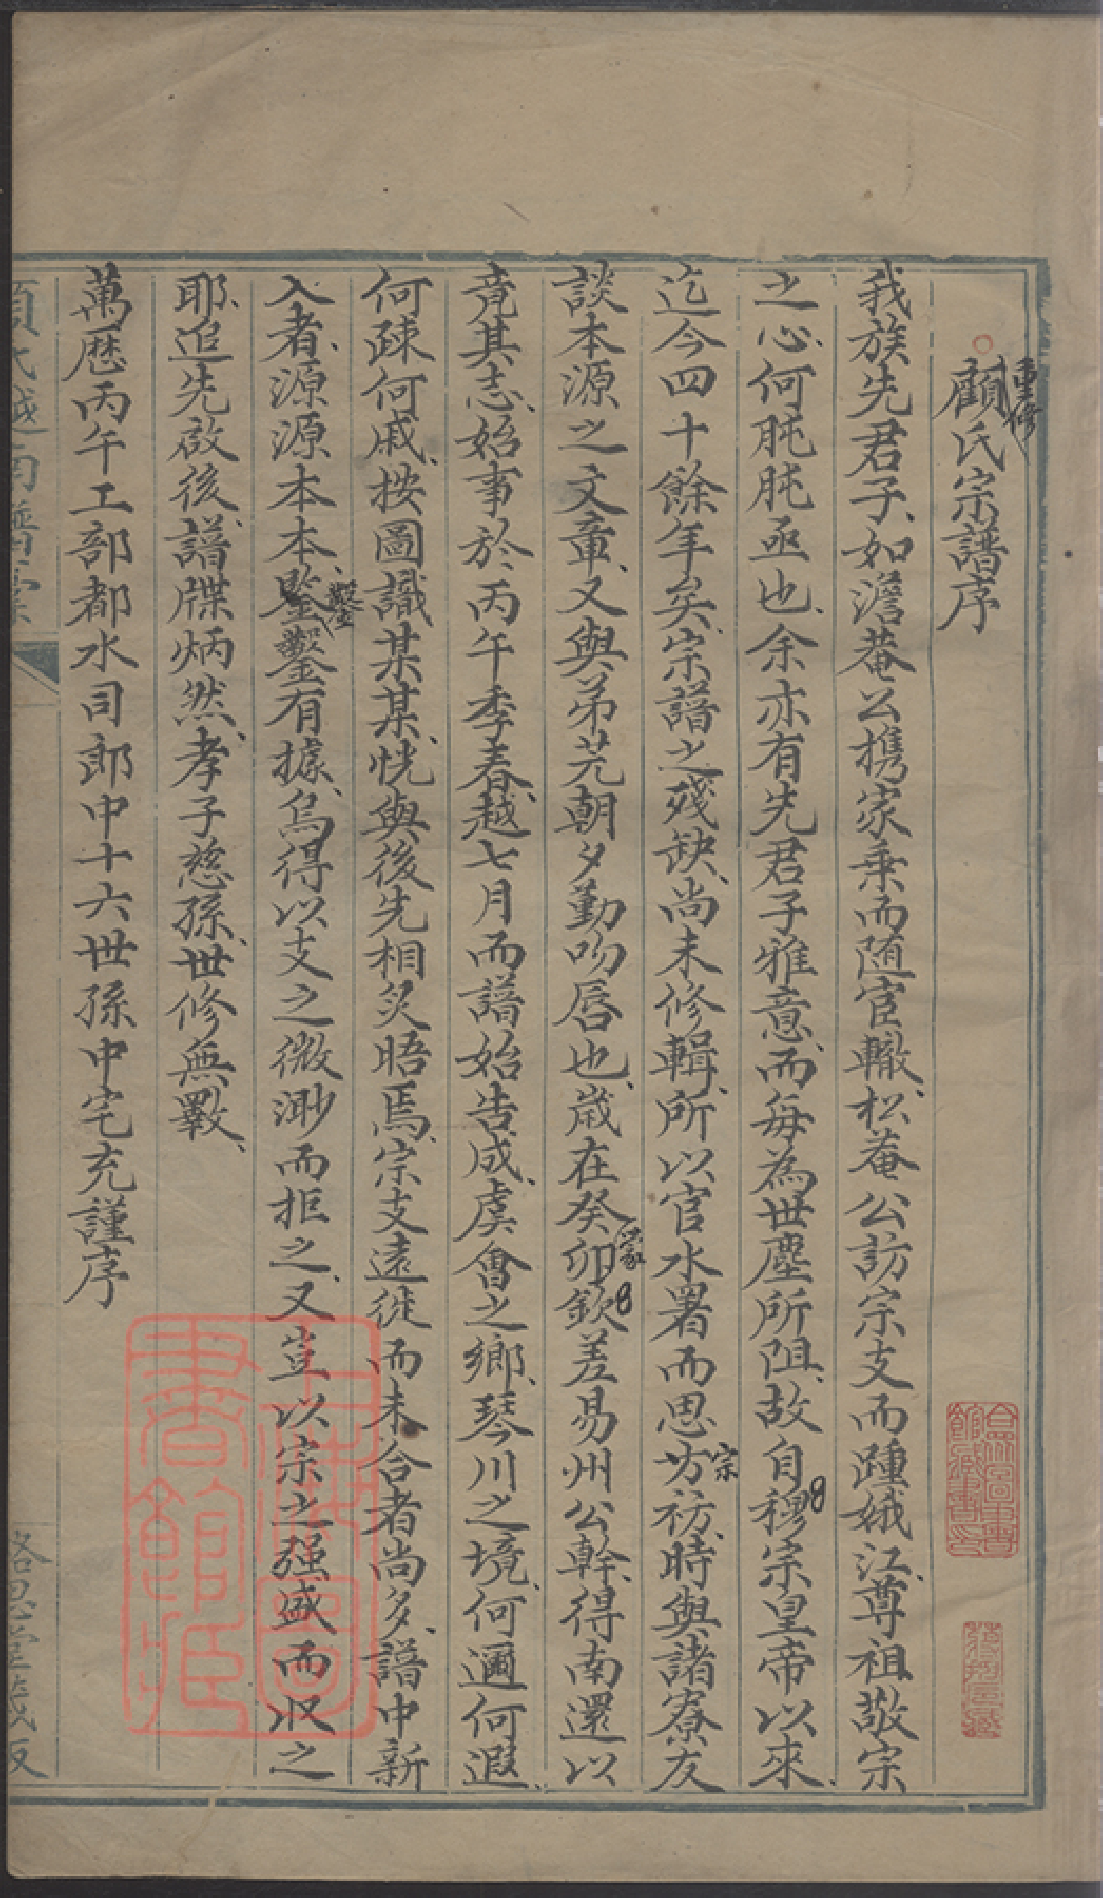 重修
顧氏宗譜序
我族先君子、如澹菴公携家乘而随宦轍、松菴公訪宗支而踵娥江、尊祖敬宗
之心、何肫肫亟也、余亦有先君子雅意、而每為世塵所阻、故自穆宗皇帝以來、
迄今四十餘年矣、宗譜之殘缺、尚未修輯、所以官水署而思宗祊、時與諸寮友
談本源之文章、又與弟芫朝夕勤吻唇也、歲在癸卯蒙欽差易州公幹、得南還以
竟其志、始事於丙午季春、越七月而譜始告成、虞會之鄉、琴川之境、何邇何遐、
何疎何戚、按圖識某某、恍與後先相炙晤焉、宗支遠徙而未合者尚多、譜中新
入者、源源本本、鑿鑿有據、烏得以支之微渺而拒之、又豈以宗之强盛而収之
耶、追先啟後、譜牒炳然、孝子慈孫、世修無斁、
萬厯丙午工部都水司郎中十六世孫中宅充謹序
顧氏越南譜藁
上海圖書館藏